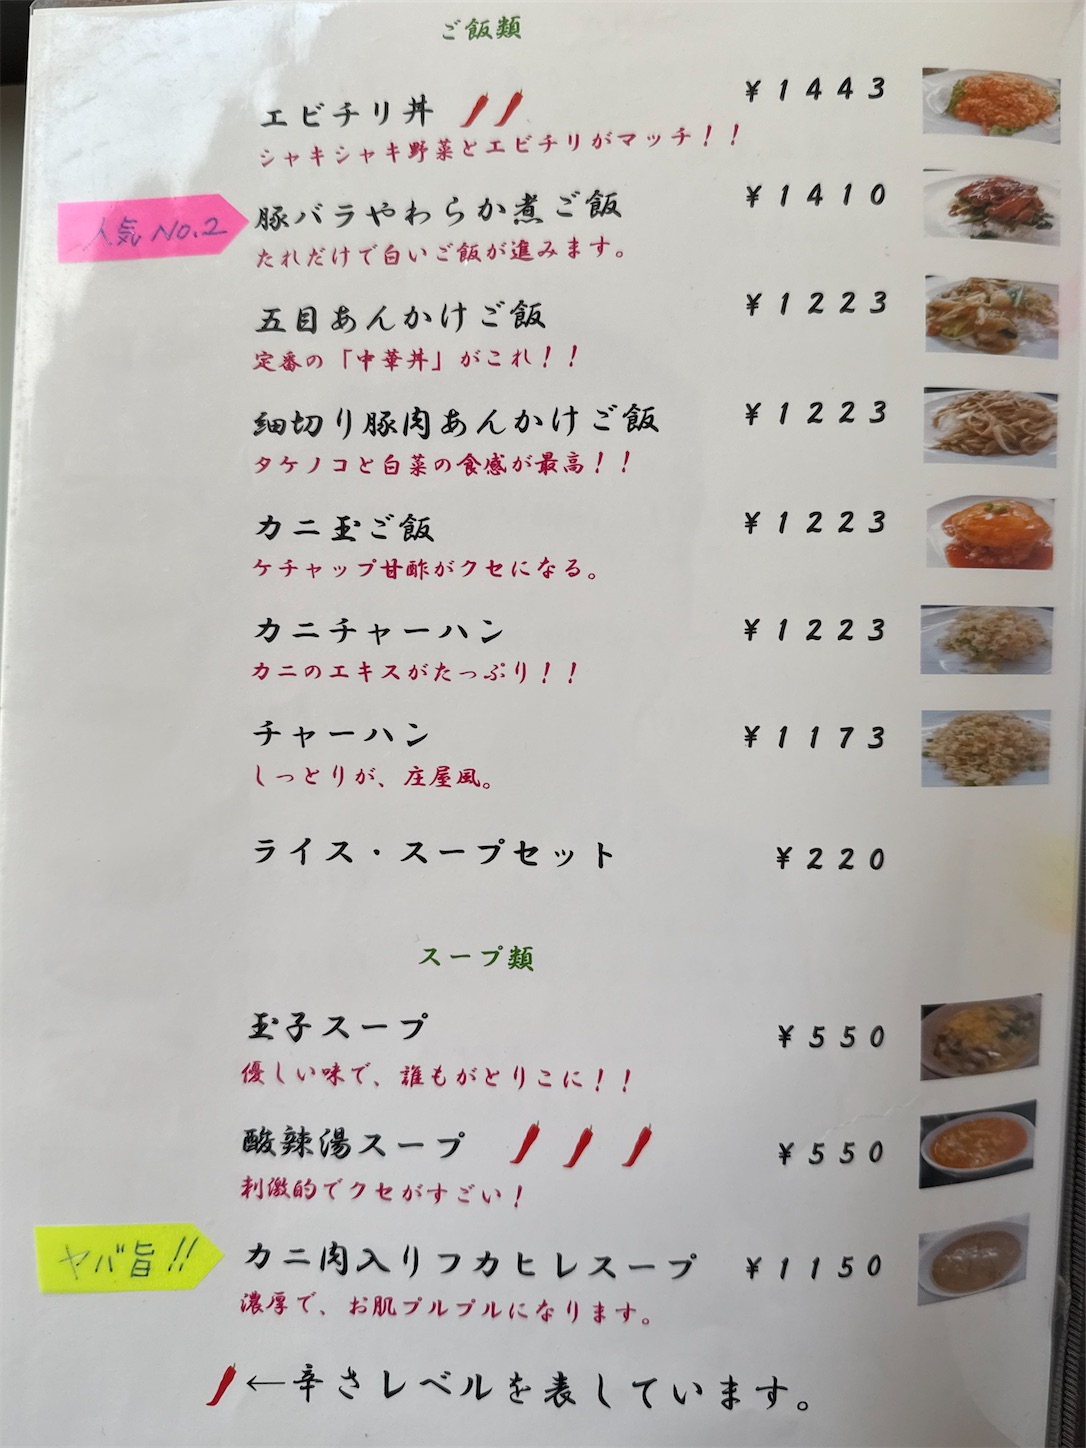 ご飯類
エビチリ丼
¥1443
シャキシャキ野菜とエビチリがマッチ！！
人気 No.2
豚バラやわらか煮ご飯
¥1410
たれだけで白いご飯が進みます。
五目あんかけご飯
¥1223
定番の「中華丼」がこれ！！
細切り豚肉あんかけご飯
¥1223
タケノコと白菜の食感が最高！！
カニ玉ご飯
¥1223
ケチャップ甘酢がクセになる。
カニチャーハン
¥1223
カニのエキスがたっぷり！！
チャーハン
¥1173
しっとりが、庄屋風。
ライス・スープセット
¥220
スープ類
玉子スープ
¥550
優しい味で、誰もがとりこに！！
酸辣湯スープ
¥550
刺激的でクセがすごい！
ヤバ旨!!
カニ肉入りフカヒレスープ
¥1150
濃厚で、お肌プルプルになります。
←辛さレベルを表しています。